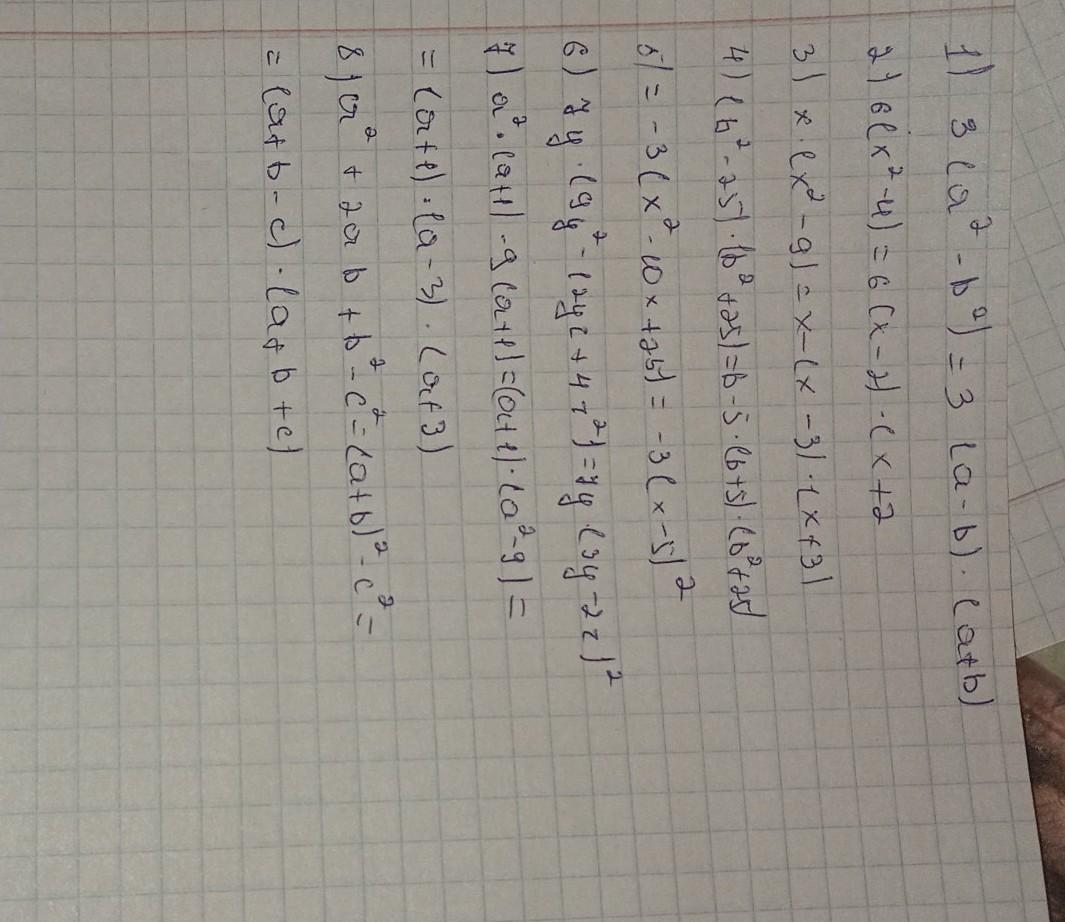 1) 3(a²-b²)=3(a-b)·(a+b)
2) 6(x²-4)=6(x-2)·(x+2
3) x·(x²-9)=x-(x-3)·(x+3)
4) (b²-25)·(b²+25)=b-5·(b+5)·(b²+25)
5) =-3(x²-10x+25)=-3(x-5)²
6) 7y·(9y²-12yz+4z²)=7y·(3y-2z)²
7) a²·(a+1)-9(a+1)=(a+1)·(a²-9)=
=(a+1)·(a-3)·(a+3)
8) a²+2ab+b²-c²=(a+b)²-c²=
=(a+b-c)·(a+b+c)